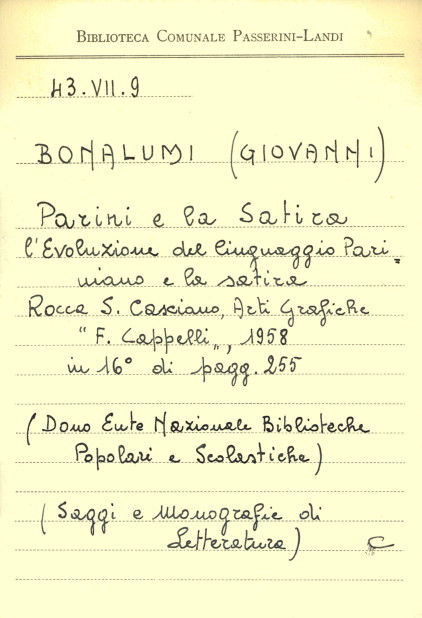 BIBLIOTECA COMUNALE PASSERINI-LANDI
43.VII.9
BONALUMI (GIOVANNI)
Parini e la Satira
l'Evoluzione del linguaggio Pari=
niano e la satira
Rocca S. Casciano, Arti Grafiche
"F. Cappelli", 1958
in 16° di pagg. 255
(Dono Ente Nazionale Biblioteche
Popolari e Scolastiche)
(Saggi e Monografie di
Letteratura)
C